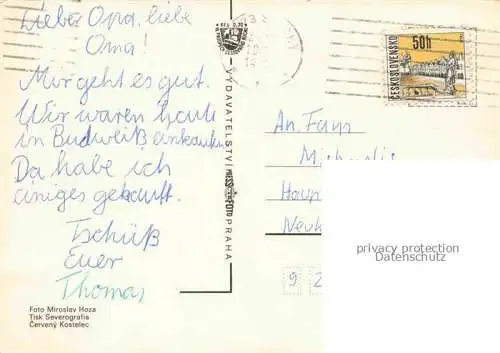 Lieber Opa, liebe
Oma!
Mir geht es gut.
Wir waren heute
in Budweiß einkaufen
Da habe ich
einiges gekauft.
Tschüß
Euer
Thomas
Foto Miroslav Hoza
Tisk Severografia
Červený Kostelec
VYDAVATELSTVÍ PRESSFOTO PRAHA
ČESKOSLOVENSKO
50h
An Fam
Haup
Neuk
privacy protection
Datenschutz
9 2